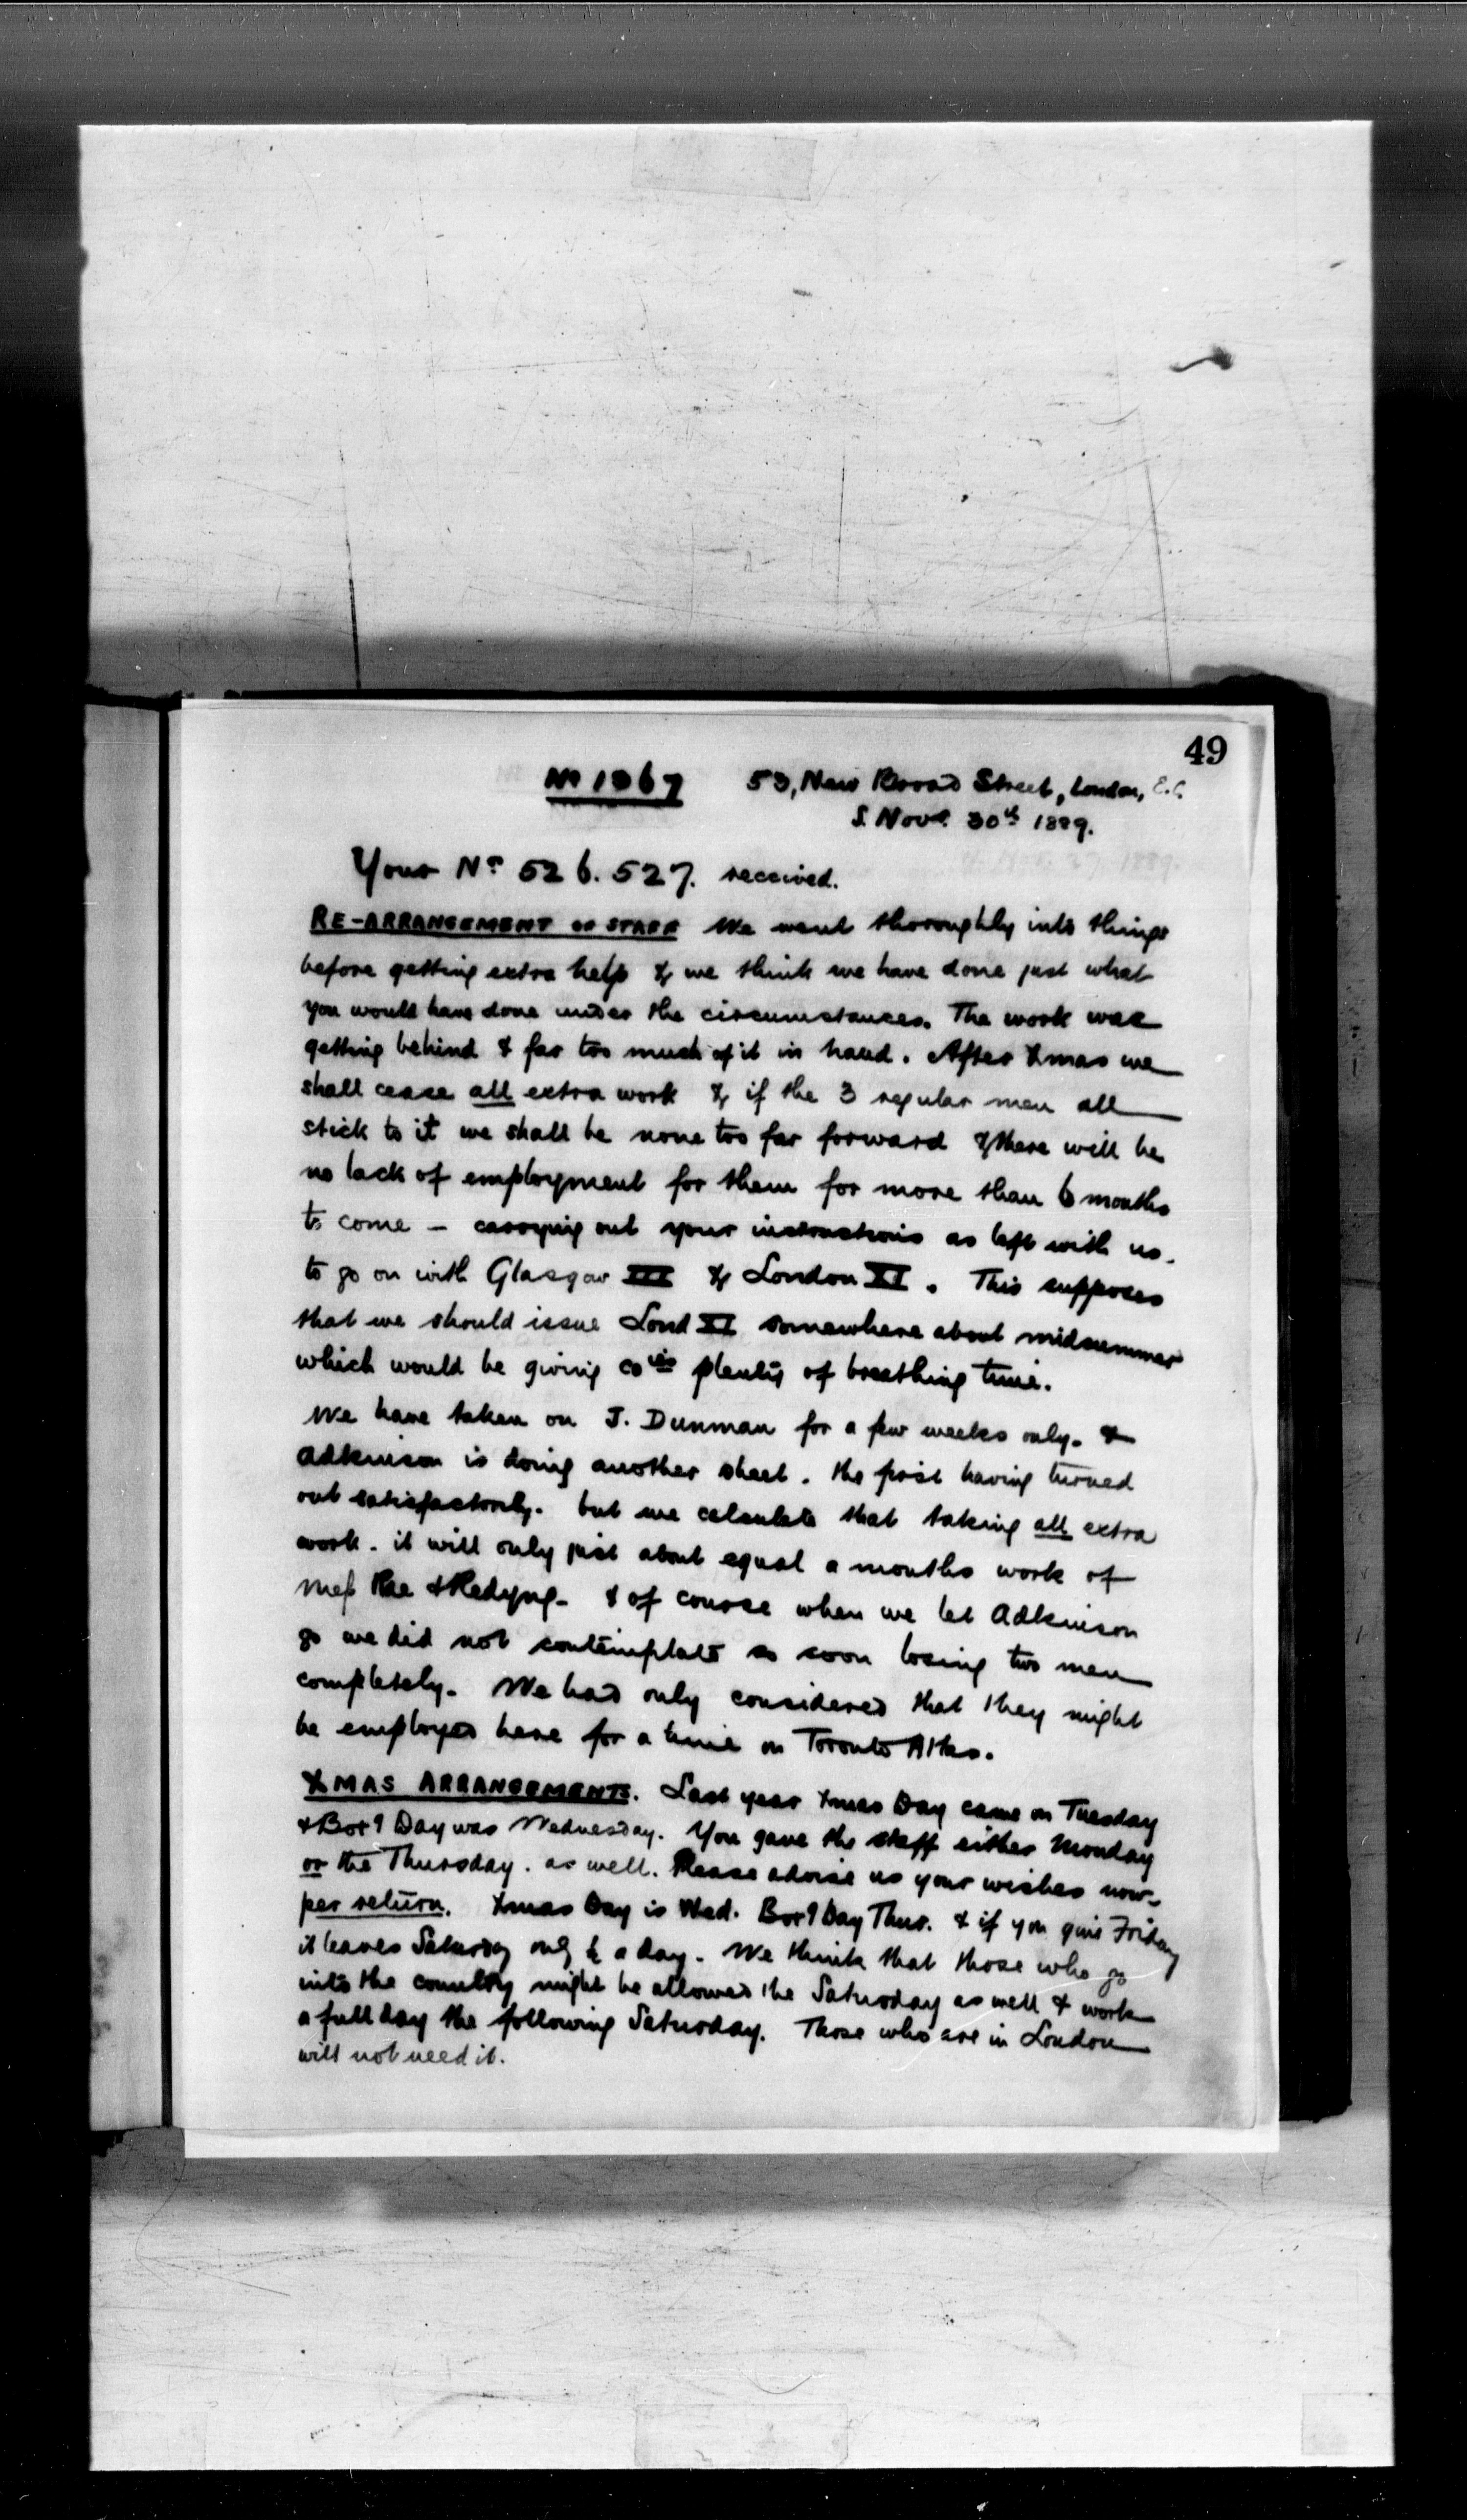 49
No 1367 53, New Broad Street, London, E.C.
S. Novr. 30th 1889.
Your Nos 526. 527. received.
RE-ARRANGEMENT OF STAFF We went thoroughly into things
before getting extra help & we think we have done just what
you would have done under the circumstances. The work was
getting behind & far too much of it in hand. After Xmas we
shall cease all extra work & if the 3 regular men all
stick to it we shall be none too far forward & there will be
no lack of employment for them for more than 6 months
to come – carrying out your instructions as left with us.
to go on with Glasgow III & London XI. This supposes
that we should issue Lond XI somewhere about midsummer
which would be giving cos plenty of breathing time.
We have taken on J. Dunman for a few weeks only. &
Adkinson is doing another sheet. the first having turned
out satisfactorily. but we calculate that taking all extra
work. it will only just about equal a months work of
Rae & - & of course when we let Adkinson
go we did not contemplate so soon losing two men
completely. We had only considered that they might
be employed here for a time on Toronto Atlas.
XMAS ARRANGEMENTS. Last year Xmas Day came on Tuesday
& Boxg Day was Wednesday. You gave the staff either Monday
or the Thursday. as well. Please advise us your wishes now–
per return. Xmas Day is Wed. Boxg Day Thur. & if you give Friday
it leaves Saturday only ½ a day. We think that those who go
into the country might be allowed the Saturday as well & work
a full day the following Saturday. Those who are in London
will not need it.